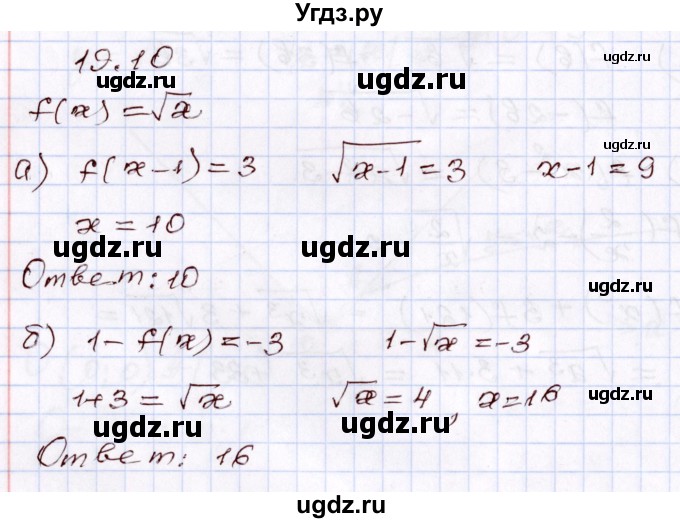 Угдз.ру
19.10
ugdz.ru ugdz.ru ugdz.ru
f(x) = √x
а) f(x-1) = 3 √x-1 = 3 x-1 = 9
x = 10
ugdz.ru ugdz.ru ugdz.ru
Ответ: 10
б) 1 - f(x) = -3 1 - √x = -3
1+3 = √x √x = 4, x = 16
ugdz.ru ugdz.ru ugdz.ru
Ответ: 16
ugdz.ru